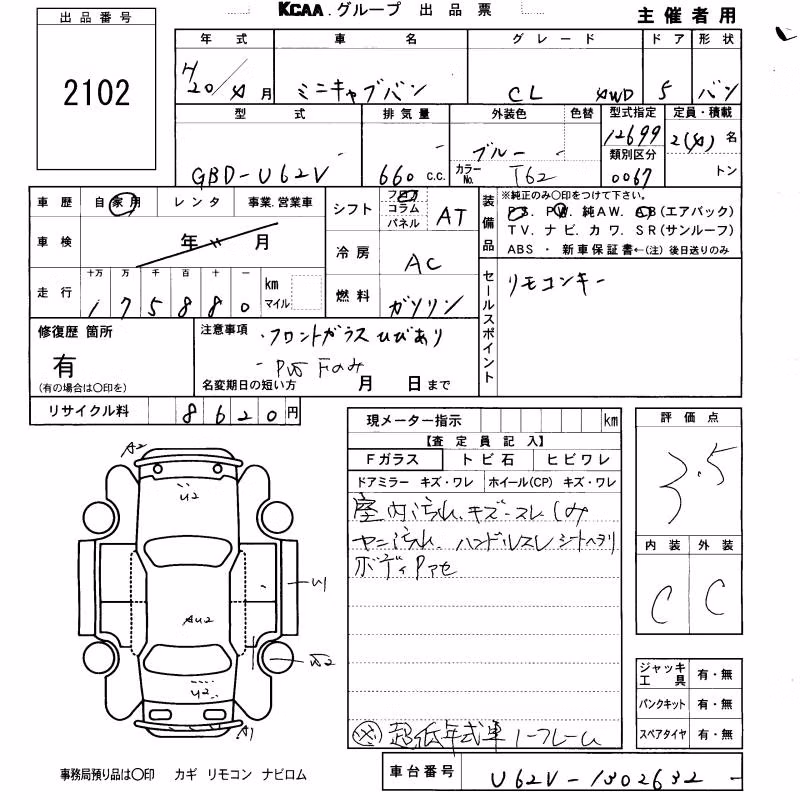 KCAA.グループ 出品票
主催者用
出品番号
2102
年式 車名 グレード ドア 形状
H20/4月 ミニキャブバン CL 4WD 5 バン
型式 排気量 外装色 色替 型式指定 定員・積載
GBD-U62V 660 c.c. ブルー 12699 2(4)名
カラーNo. T62 類別区分 0067 トン
車歴 自家用 レンタ 事業.営業車
車検 年 月
走行 十万 万 千 百 十 一
175880 km マイル
シフト フロア コラム パネル AT
冷房 AC
燃料 ガソリン
装備品
※純正のみ〇印をつけて下さい。
PS. PW. 純AW. AB(エアバック)
TV. ナビ. カワ. SR(サンルーフ)
ABS ・ 新車保証書←(注)後日送りのみ
セールスポイント
リモコンキー
修復歴 箇所
有
(有の場合は〇印を)
注意事項 ・フロントガラスひびあり
・PW Fのみ
名変期日の短い方 月 日まで
リサイクル料 8620円
現メーター指示 km
【査定員記入】
Fガラス トビ石 ヒビワレ
ドアミラー キズ・ワレ ホイール(CP) キズ・ワレ
室内汚れ、キズ・スレ シミ
ヤニ汚れ、ハンドルスレ シートヘタリ
ボディPアセ
超低年式車 1-フレーム
評価点
3.5
内装 外装
C C
ジャッキ工具 有・無
パンクキット 有・無
スペアタイヤ 有・無
A2
U2
U1
AU2
U2
A1
事務局預り品は〇印 カギ リモコン ナビロム
車台番号 U62V-1302632